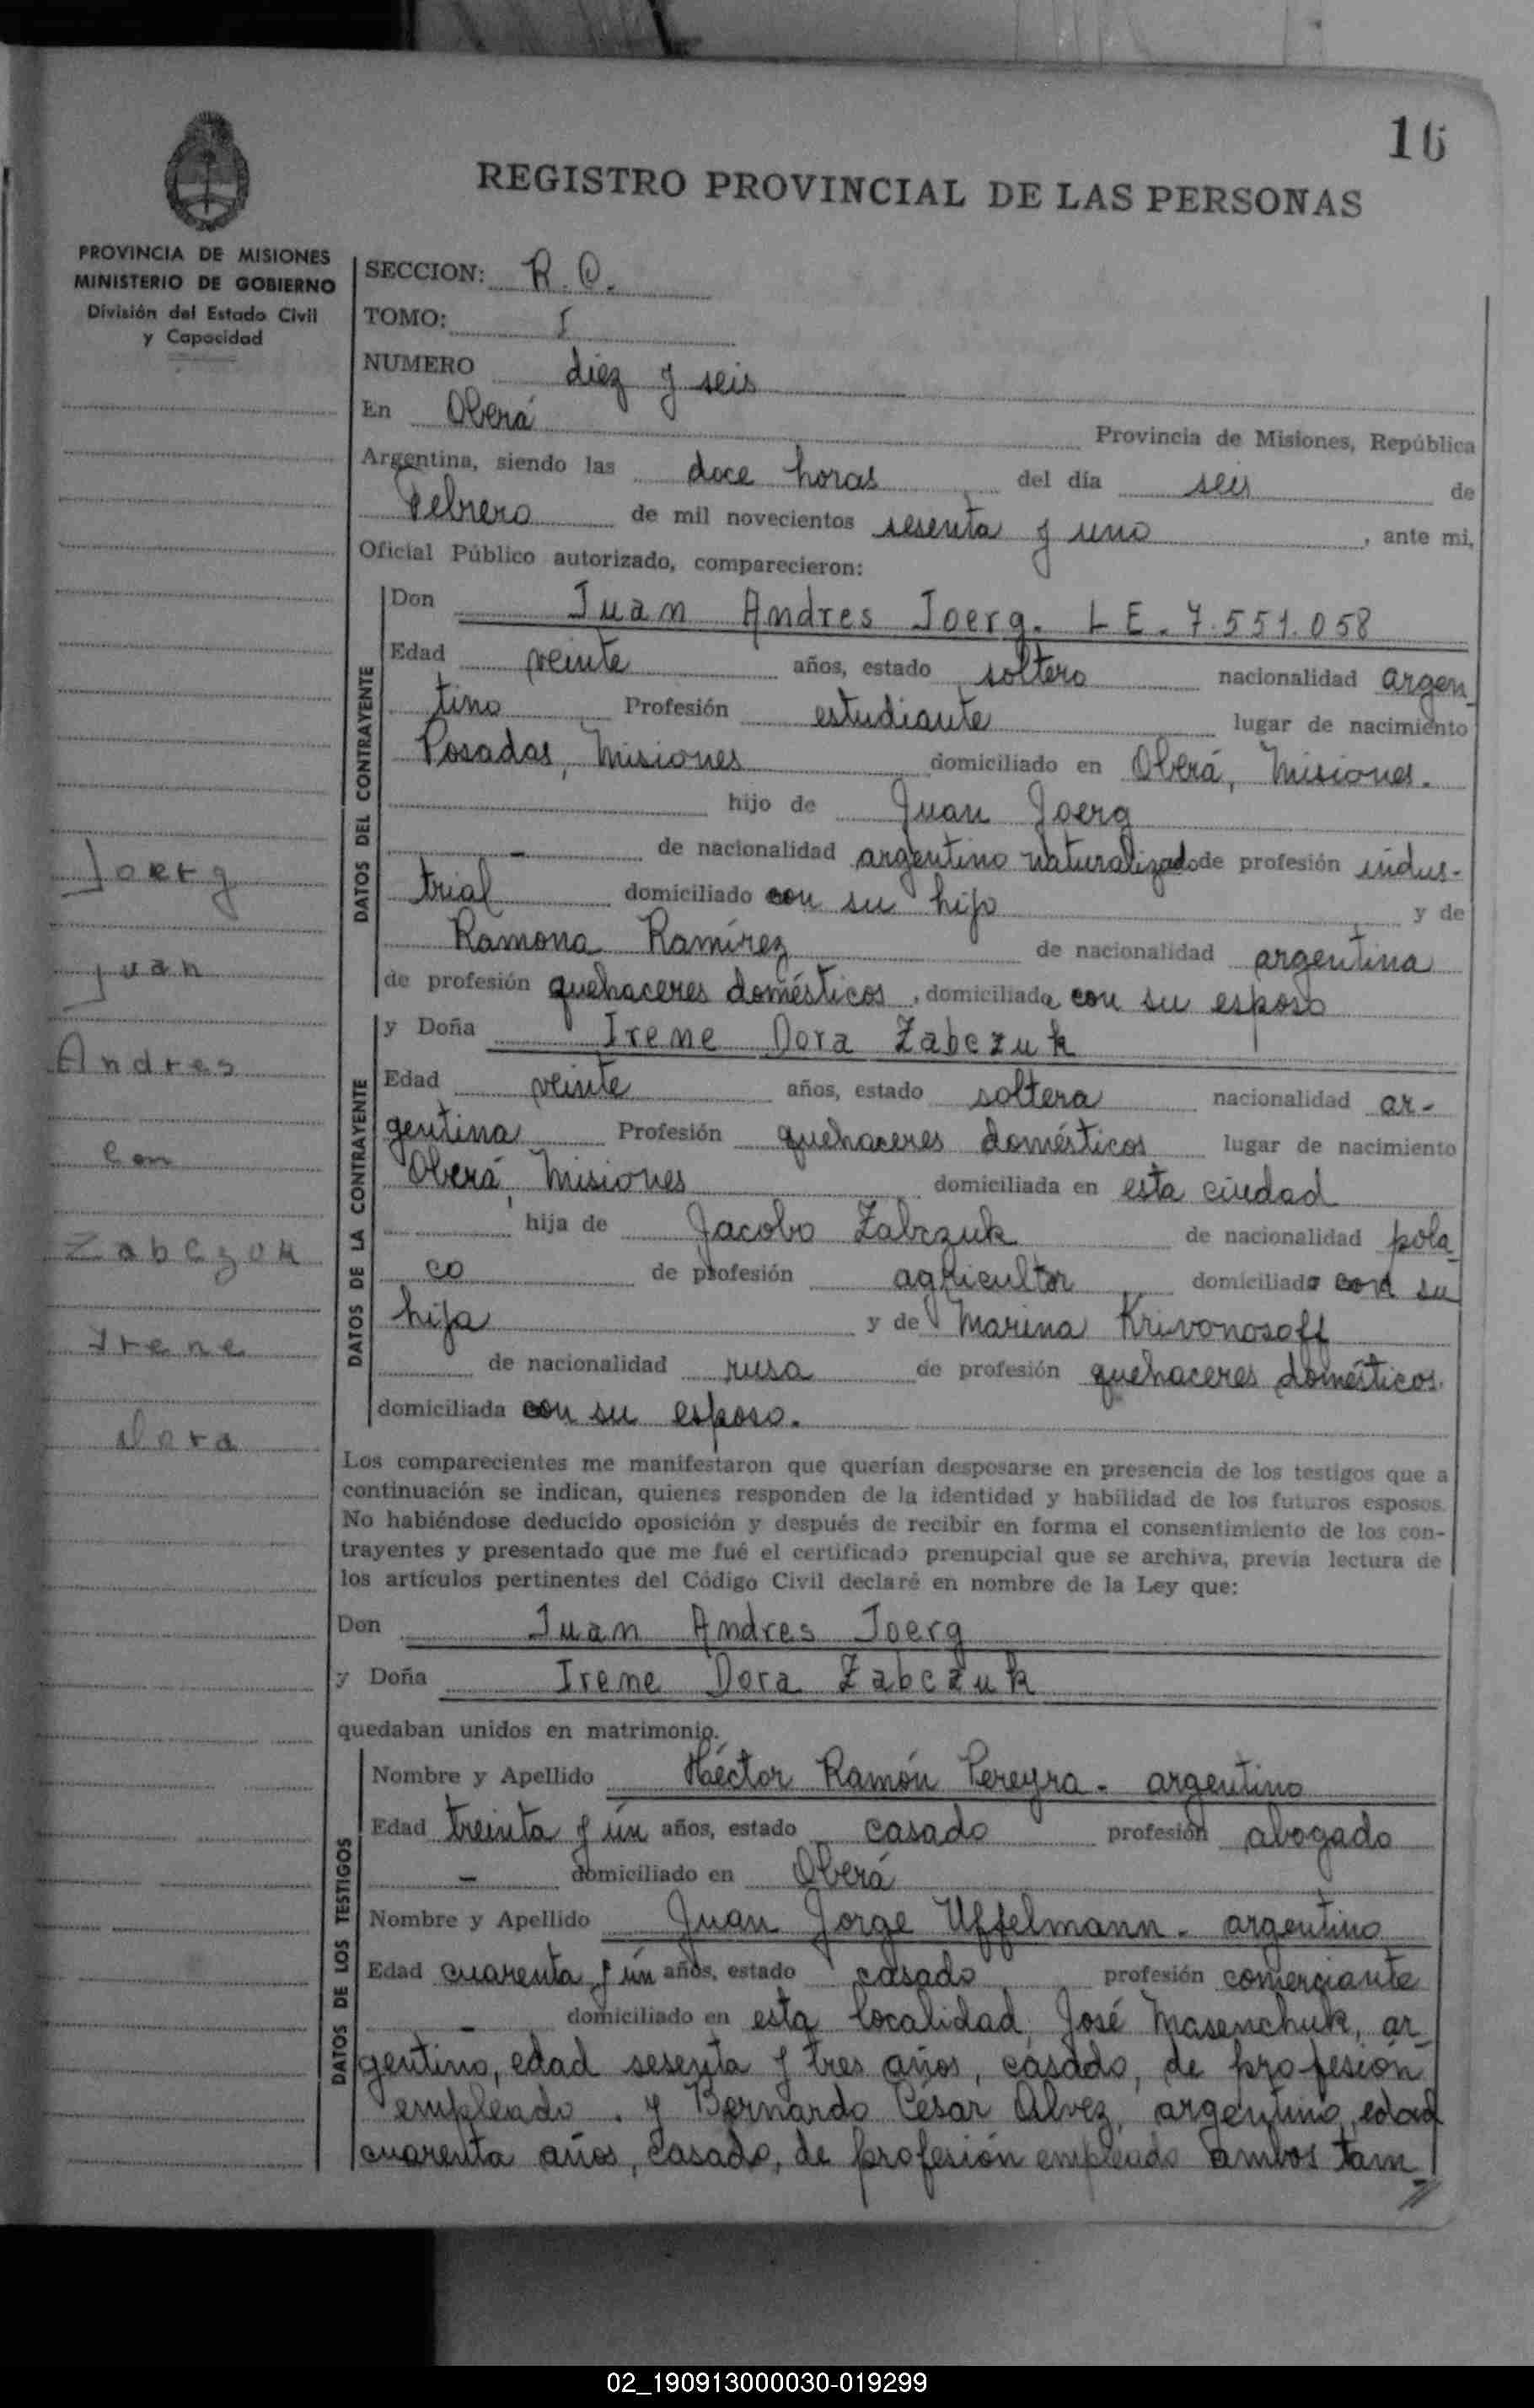 16
REGISTRO PROVINCIAL DE LAS PERSONAS
PROVINCIA DE MISIONES
MINISTERIO DE GOBIERNO
División del Estado Civil
y Capacidad
Joerg
Juan
Andres
con
Zabczuk
Irene
Dora
SECCION: R. O.
TOMO: I
NUMERO diez y seis
En Oberá Provincia de Misiones, República
Argentina, siendo las doce horas del día seis de
Febrero de mil novecientos sesenta y uno, ante mi,
Oficial Público autorizado, comparecieron:
DATOS DEL CONTRAYENTE
Don Juan Andres Joerg. L E. 7.551.058
Edad veinte años, estado soltero nacionalidad argen
tino Profesión estudiante lugar de nacimiento
Posadas, Misiones domiciliado en Oberá, Misiones.
hijo de Juan Joerg
- de nacionalidad argentino naturalizado de profesión indus-
trial domiciliado con su hijo y de
Ramona Ramírez de nacionalidad argentina
de profesión quehaceres domésticos, domiciliada con su esposo
DATOS DE LA CONTRAYENTE
y Doña Irene Dora Zabczuk
Edad veinte años, estado soltera nacionalidad ar-
gentina Profesión quehaceres domésticos lugar de nacimiento
Oberá, Misiones domiciliada en esta ciudad
hija de Jacobo Zabczuk de nacionalidad pola
co de profesión agricultor domiciliado con su
hija y de Marina Krivonosoff
de nacionalidad rusa de profesión quehaceres domésticos.
domiciliada con su esposo.
Los comparecientes me manifestaron que querían desposarse en presencia de los testigos que a
continuación se indican, quienes responden de la identidad y habilidad de los futuros esposos.
No habiéndose deducido oposición y después de recibir en forma el consentimiento de los con-
trayentes y presentado que me fué el certificado prenupcial que se archiva, previa lectura de
los artículos pertinentes del Código Civil declaré en nombre de la Ley que:
Don Juan Andres Joerg
y Doña Irene Dora Zabczuk
quedaban unidos en matrimonio.
DATOS DE LOS TESTIGOS
Nombre y Apellido Héctor Ramón Pereyra - argentino
Edad treinta y ún años, estado casado profesión abogado
- domiciliado en Oberá
Nombre y Apellido Juan Jorge Uffelmann - argentino
Edad cuarenta y ún años, estado casado profesión comerciante
- domiciliado en esta localidad, José Masenchuk, ar
gentino, edad sesenta y tres años, casado, de profesión
empleado. y Bernardo César Alvez, argentino, edad
cuarenta años, casado, de profesión empleado ambos tam
02_190913000030-019299